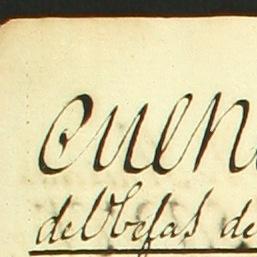 Cuen
del Vefas de